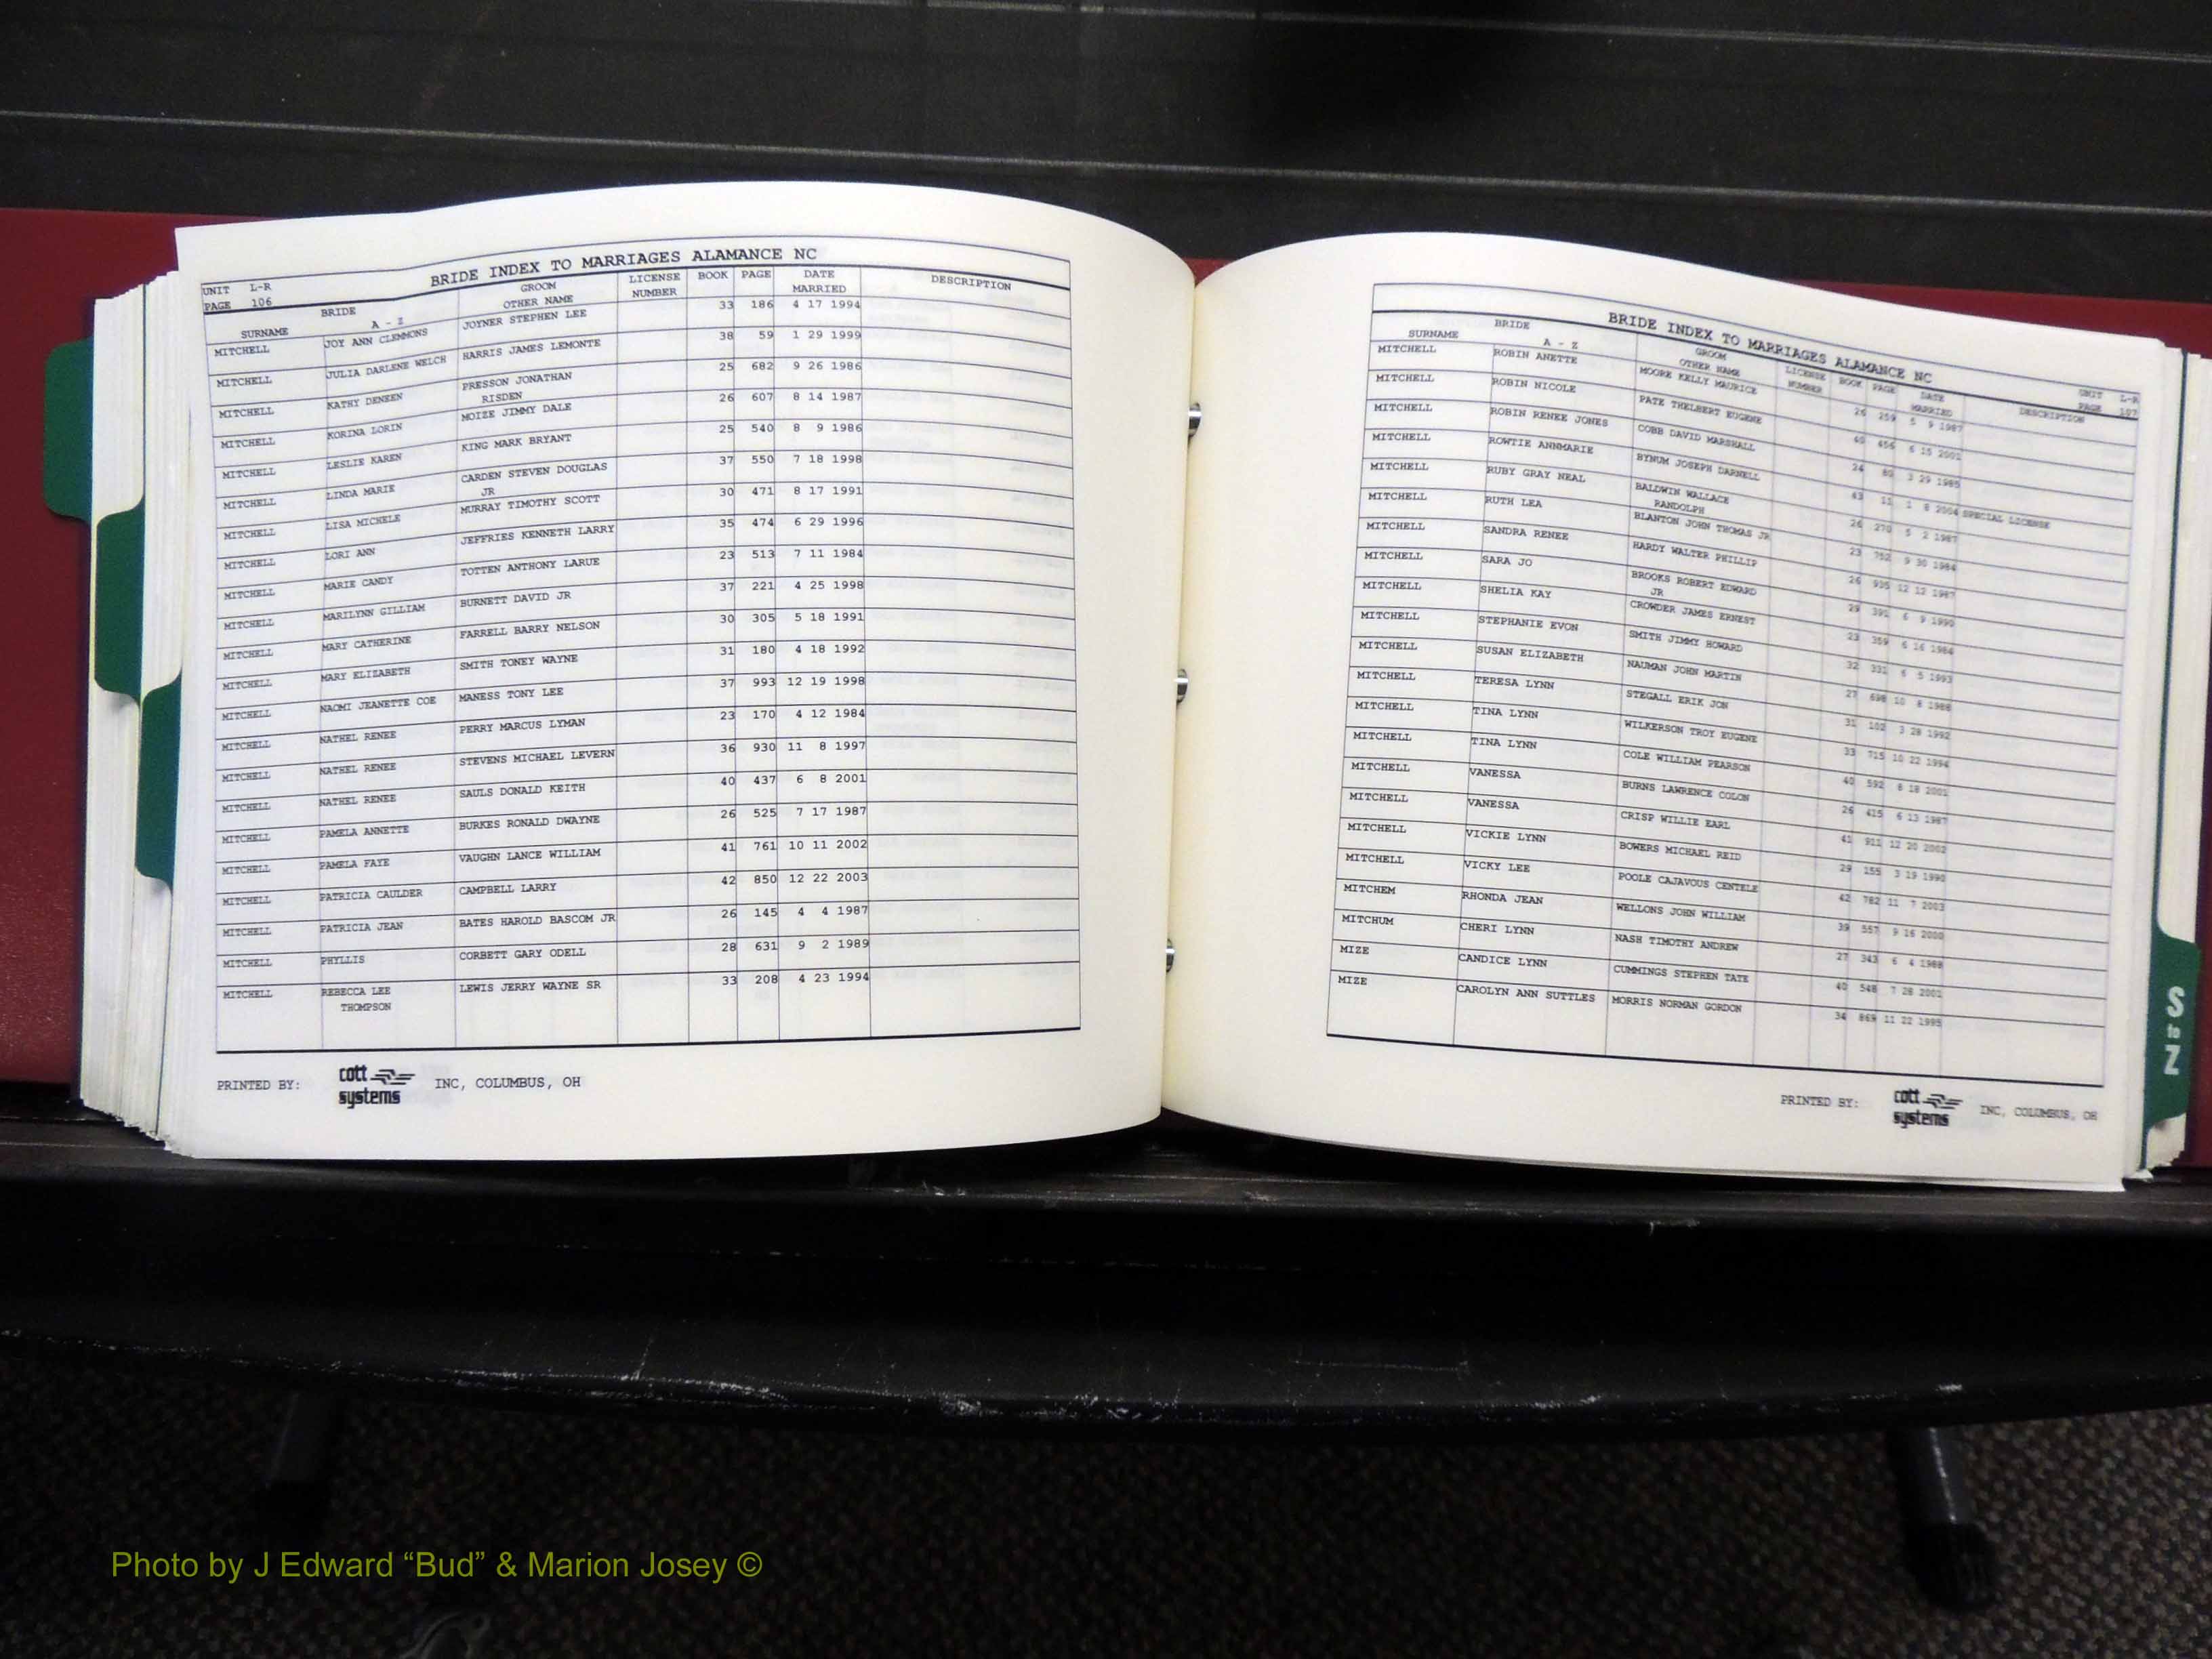 BRIDE INDEX TO MARRIAGES ALAMANCE NC
UNIT L-R
PAGE 106
BRIDE GROOM LICENSE BOOK PAGE DATE DESCRIPTION
SURNAME A - Z OTHER NAME NUMBER MARRIED
MITCHELL JOY ANN CLEMMONS JOYNER STEPHEN LEE 33 186 4 17 1994
MITCHELL JULIA DARLENE WELCH HARRIS JAMES LEMONTE 38 59 1 29 1999
MITCHELL KATHY DENEEN PRESSON JONATHAN 25 682 9 26 1986
RISDEN
MITCHELL KORINA LORIN MOIZE JIMMY DALE 26 607 8 14 1987
MITCHELL LESLIE KAREN KING MARK BRYANT 25 540 8 9 1986
MITCHELL LINDA MARIE CARDEN STEVEN DOUGLAS 37 550 7 18 1998
JR
MITCHELL LISA MICHELE MURRAY TIMOTHY SCOTT 30 471 8 17 1991
MITCHELL LORI ANN JEFFRIES KENNETH LARRY 35 474 6 29 1996
MITCHELL MARIE CANDY TOTTEN ANTHONY LARUE 23 513 7 11 1984
MITCHELL MARILYNN GILLIAM BURNETT DAVID JR 37 221 4 25 1998
MITCHELL MARY CATHERINE FARRELL BARRY NELSON 30 305 5 18 1991
MITCHELL MARY ELIZABETH SMITH TONEY WAYNE 31 180 4 18 1992
MITCHELL NAOMI JEANETTE COE MANESS TONY LEE 37 993 12 19 1998
MITCHELL NATHEL RENEE PERRY MARCUS LYMAN 23 170 4 12 1984
MITCHELL NATHEL RENEE STEVENS MICHAEL LEVERN 36 930 11 8 1997
MITCHELL NATHEL RENEE SAULS DONALD KEITH 40 437 6 8 2001
MITCHELL PAMELA ANNETTE BURKES RONALD DWAYNE 26 525 7 17 1987
MITCHELL PAMELA FAYE VAUGHN LANCE WILLIAM 41 761 10 11 2002
MITCHELL PATRICIA CAULDER CAMPBELL LARRY 42 850 12 22 2003
MITCHELL PATRICIA JEAN BATES HAROLD BASCOM JR 26 145 4 4 1987
MITCHELL PHYLLIS CORBETT GARY ODELL 28 631 9 2 1989
MITCHELL REBECCA LEE LEWIS JERRY WAYNE SR 33 208 4 23 1994
THOMPSON
PRINTED BY: cott systems INC, COLUMBUS, OH
BRIDE INDEX TO MARRIAGES ALAMANCE NC
UNIT L-R
PAGE 107
BRIDE GROOM LICENSE BOOK PAGE DATE DESCRIPTION
SURNAME A - Z OTHER NAME NUMBER MARRIED
MITCHELL ROBIN ANETTE MOORE KELLY MAURICE 26 259 5 9 1987
MITCHELL ROBIN NICOLE PATE THELBERT EUGENE 40 456 6 15 2001
MITCHELL ROBIN RENEE JONES COBB DAVID MARSHALL 24 3 29 1985
MITCHELL ROWTIE ANNMARIE BYNUM JOSEPH DARNELL 43 11 1 8 2004 SPECIAL LICENSE
MITCHELL RUBY GRAY NEAL BALDWIN WALLACE 26 270 5 2 1987
RANDOLPH
MITCHELL RUTH LEA BLANTON JOHN THOMAS JR 23 752 9 30 1984
MITCHELL SANDRA RENEE HARDY WALTER PHILLIP 26 935 12 12 1987
MITCHELL SARA JO BROOKS ROBERT EDWARD 29 391 6 9 1990
JR
MITCHELL SHELIA KAY CROWDER JAMES ERNEST 23 359 6 16 1984
MITCHELL STEPHANIE EVON SMITH JIMMY HOWARD 32 331 6 5 1993
MITCHELL SUSAN ELIZABETH NAUMAN JOHN MARTIN 27 698 10 8 1988
MITCHELL TERESA LYNN STEGALL ERIK JON 31 102 3 28 1992
MITCHELL TINA LYNN WILKERSON TROY EUGENE 33 715 10 22 1994
MITCHELL TINA LYNN COLE WILLIAM PEARSON 40 592 8 18 2001
MITCHELL VANESSA BURNS LAWRENCE COLON 26 415 6 13 1987
MITCHELL VANESSA CRISP WILLIE EARL 41 911 12 20 2002
MITCHELL VICKIE LYNN BOWERS MICHAEL REID 29 155 3 19 1990
MITCHELL VICKY LEE POOLE CAJAVOUS CENTELE 42 782 11 7 2003
MITCHEM RHONDA JEAN WELLONS JOHN WILLIAM 39 557 9 16 2000
MITCHUM CHERI LYNN NASH TIMOTHY ANDREW 27 343 6 4 1988
MIZE CANDICE LYNN CUMMINGS STEPHEN TATE 40 548 7 28 2001
MIZE CAROLYN ANN SUTTLES MORRIS NORMAN GORDON 34 869 11 22 1995
PRINTED BY: cott systems INC, COLUMBUS, OH
S to Z
Photo by J Edward “Bud” & Marion Josey ©